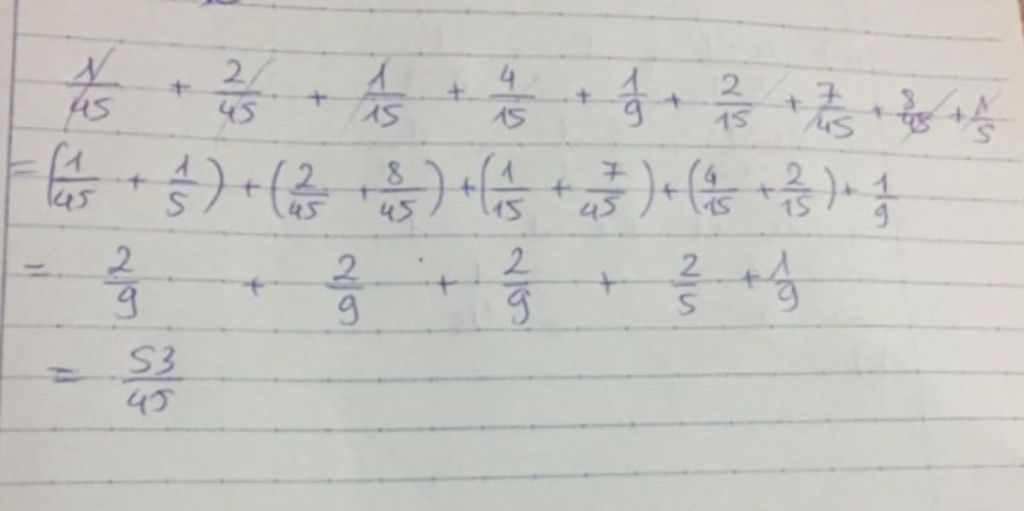 1/45 + 2/45 + 1/15 + 4/15 + 1/9 + 2/15 + 7/45 + 8/45 + 1/5
= (1/45 + 1/5) + (2/45 + 8/45) + (1/15 + 7/45) + (4/15 + 2/15) + 1/9
= 2/9 + 2/9 + 2/9 + 2/5 + 1/9
= 53/45